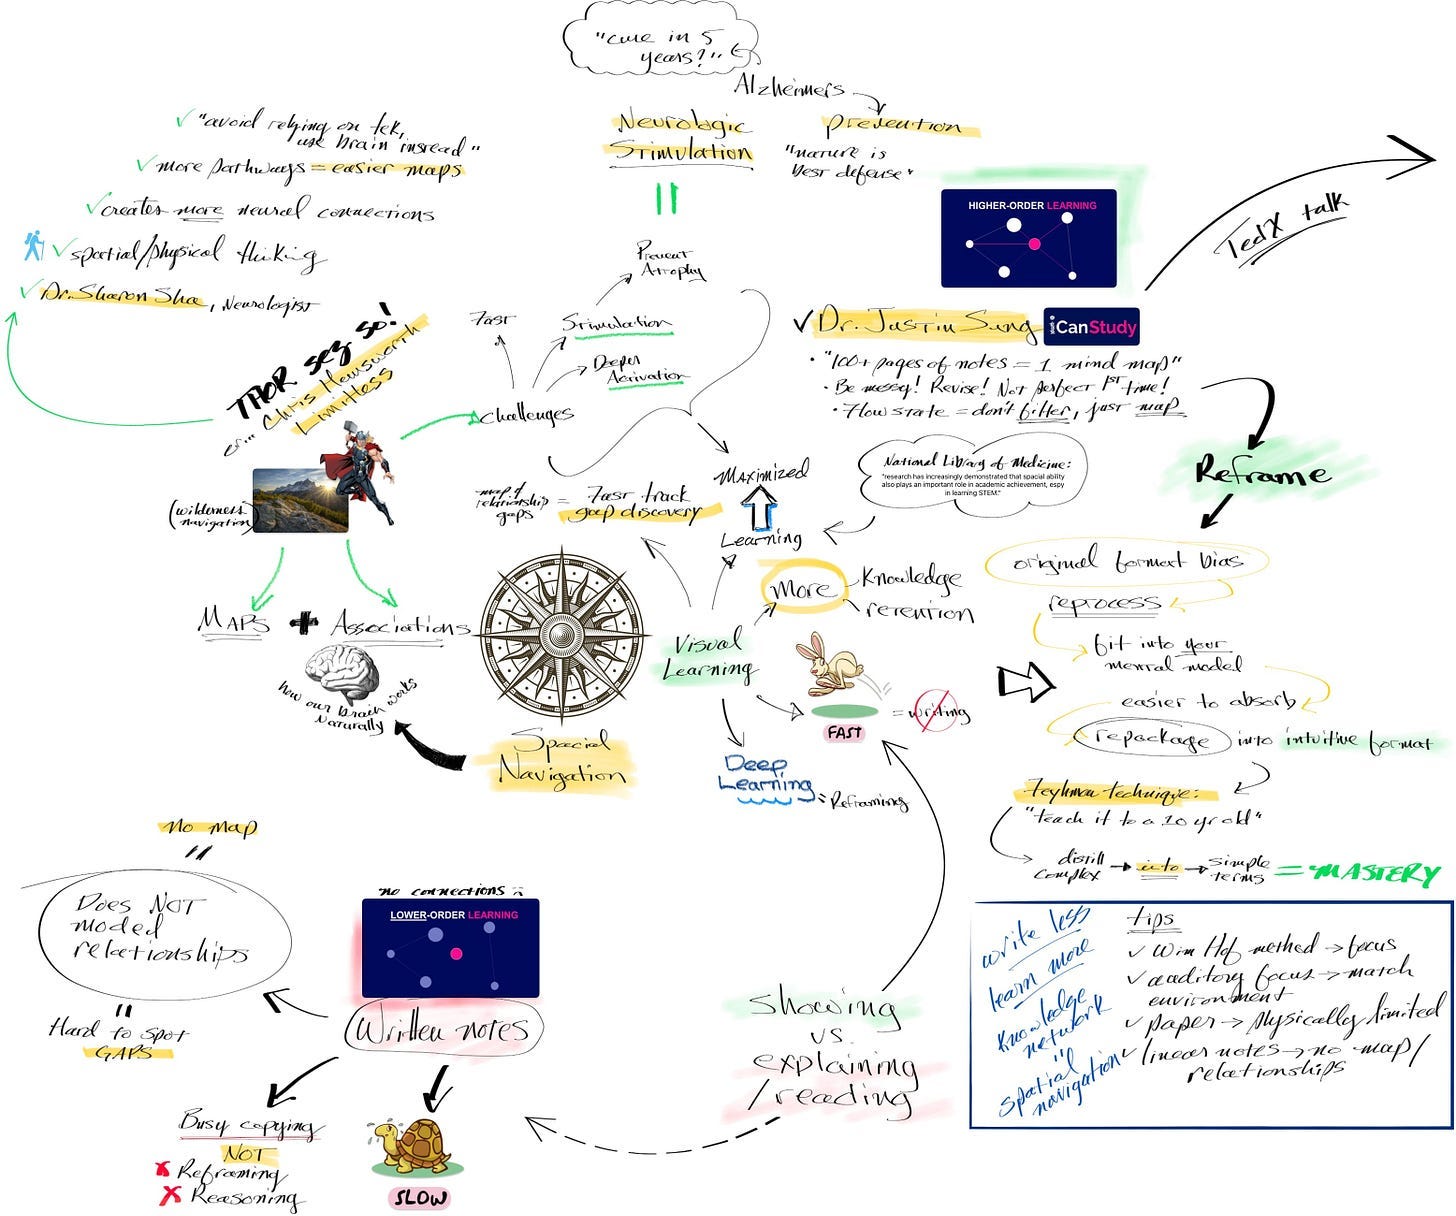 "cure in 5
years?"
Alzheimers
prevention
"nature is
best defense"
Neurologic
Stimulation
"avoid relying on tek,
use brain instead"
more pathways = easier maps
creates more neural connections
spatial/physical thiking
Dr. Sharon Sha, Neurologist
THOR sez so!
or... Chris Hemsworth
Limitless
(wilderness
navigation)
MAPS + Associations
how our brain works
naturally
Prevent
Atrophy
Fast
Stimulation
Deeper
Activation
Challenges
map of
relationship
gaps
= Fast track
gap discovery
Maximized
Learning
More
Knowledge
retention
Visual
Learning
FAST
= writing
Deep
Learning
= Reframing
Spacial
Navigation
HIGHER-ORDER LEARNING
TedX talk
Dr. Justin Sung
iCanStudy
• "100+ pages of notes = 1 mind map"
• Be messy! Revise! Not perfect 1st time!
• Flow state = don't filter, just map
National Library of Medicine:
"research has increasingly demonstrated that spacial ability
also plays an important role in academic achievement, espy
in learning STEM."
Reframe
original format bias
reprocess
fit into your
mental model
easier to absorb
repackage into intuitive format
Feynman technique:
"teach it to a 10 yr old"
distill
complex
into
simple
terms
= MASTERY
no map
=
Does NOT
model
relationships
=
Hard to spot
GAPS
no connections
LOWER-ORDER LEARNING
Written notes
Busy copying
NOT
Reframing
Reasoning
SLOW
showing
vs.
explaining
/reading
write less
learn more
Knowledge
network
=
spatial
navigation
tips
Wim Hof method → focus
auditory focus → match
environment
paper → physically limited
linear notes → no map/
relationships